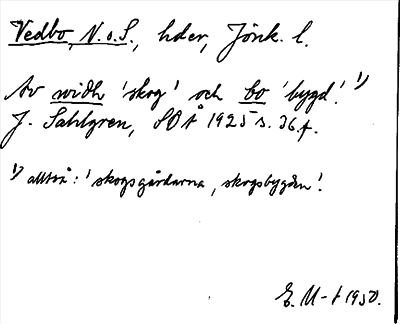 Vedbo, N. o S., hder, Jönk. l.
Av widh 'skog' och bo 'bygd'. 1)
J. Sahlgren, SOÅ 1925 s. 36 f.
1) alltså: 'skogsgårdarna, skogsbygden'.
E. M-t 1950.